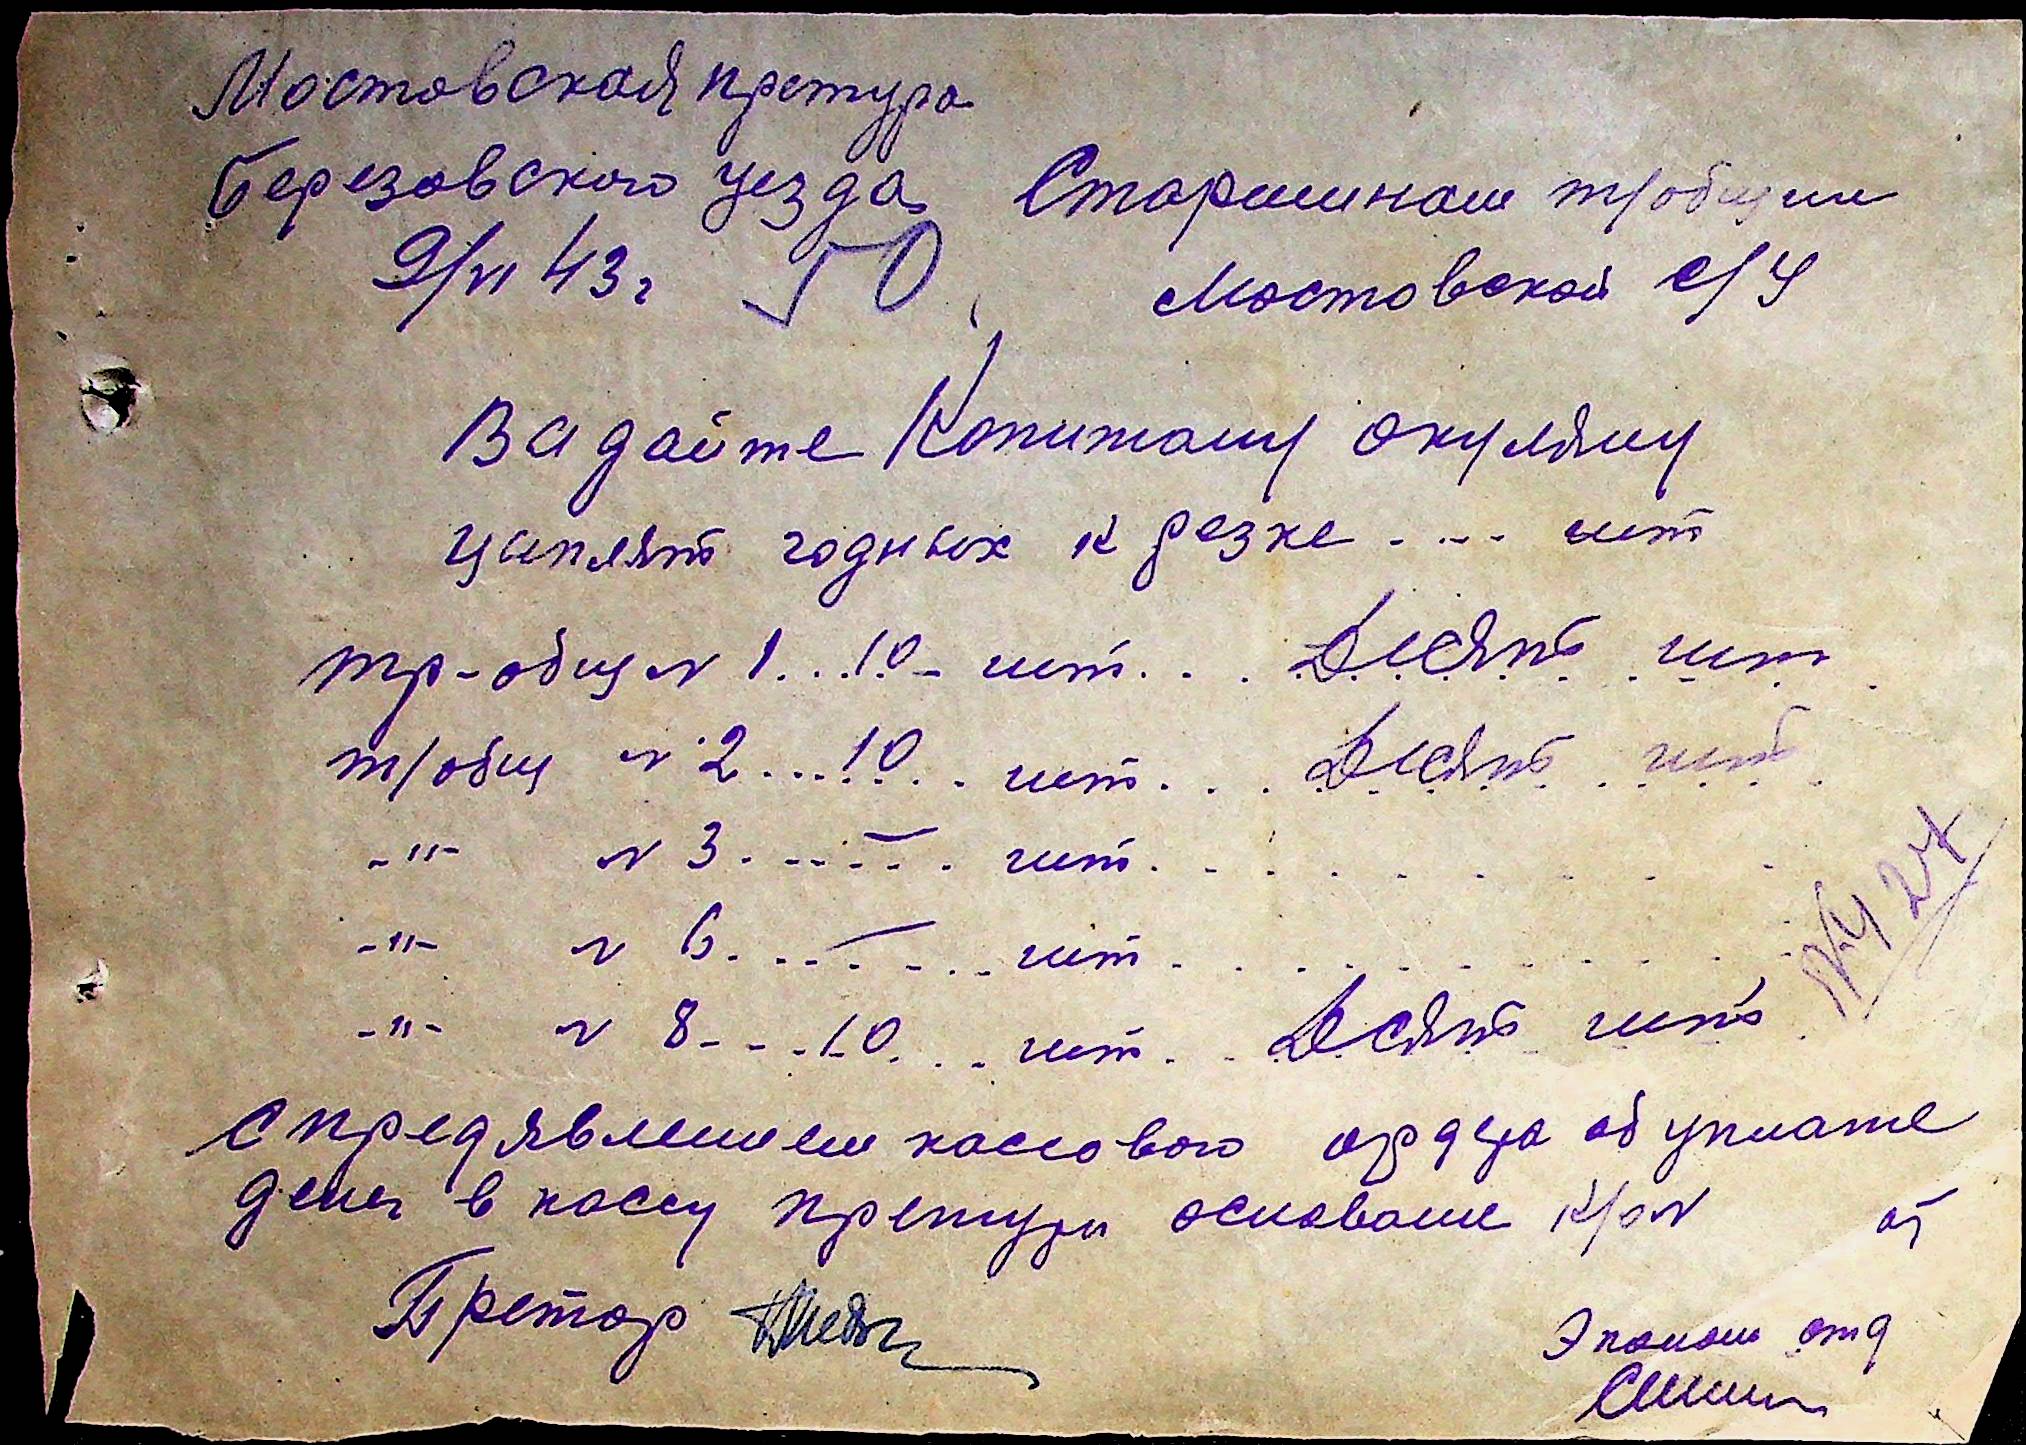 Мостовская претура
Березовского уезда
9/VI 43 г
50
Старшинам тр/общин
Мостовской с/у
Вадайте Копитану Окуляну
цыплят годных к резке - . - - - шт
тр-общ N 1...10- шт... Десять шт
тр/общ N 2...10.. шт... Десять шт
-"- N 3.------. шт.
-"- N 6.------. шт.
-"- N 8---10... шт... Десять шт
N 24
с предявлением кассового ордера об уплате
денег в кассу претуры основание К/о N от
Претор
Эконом отд